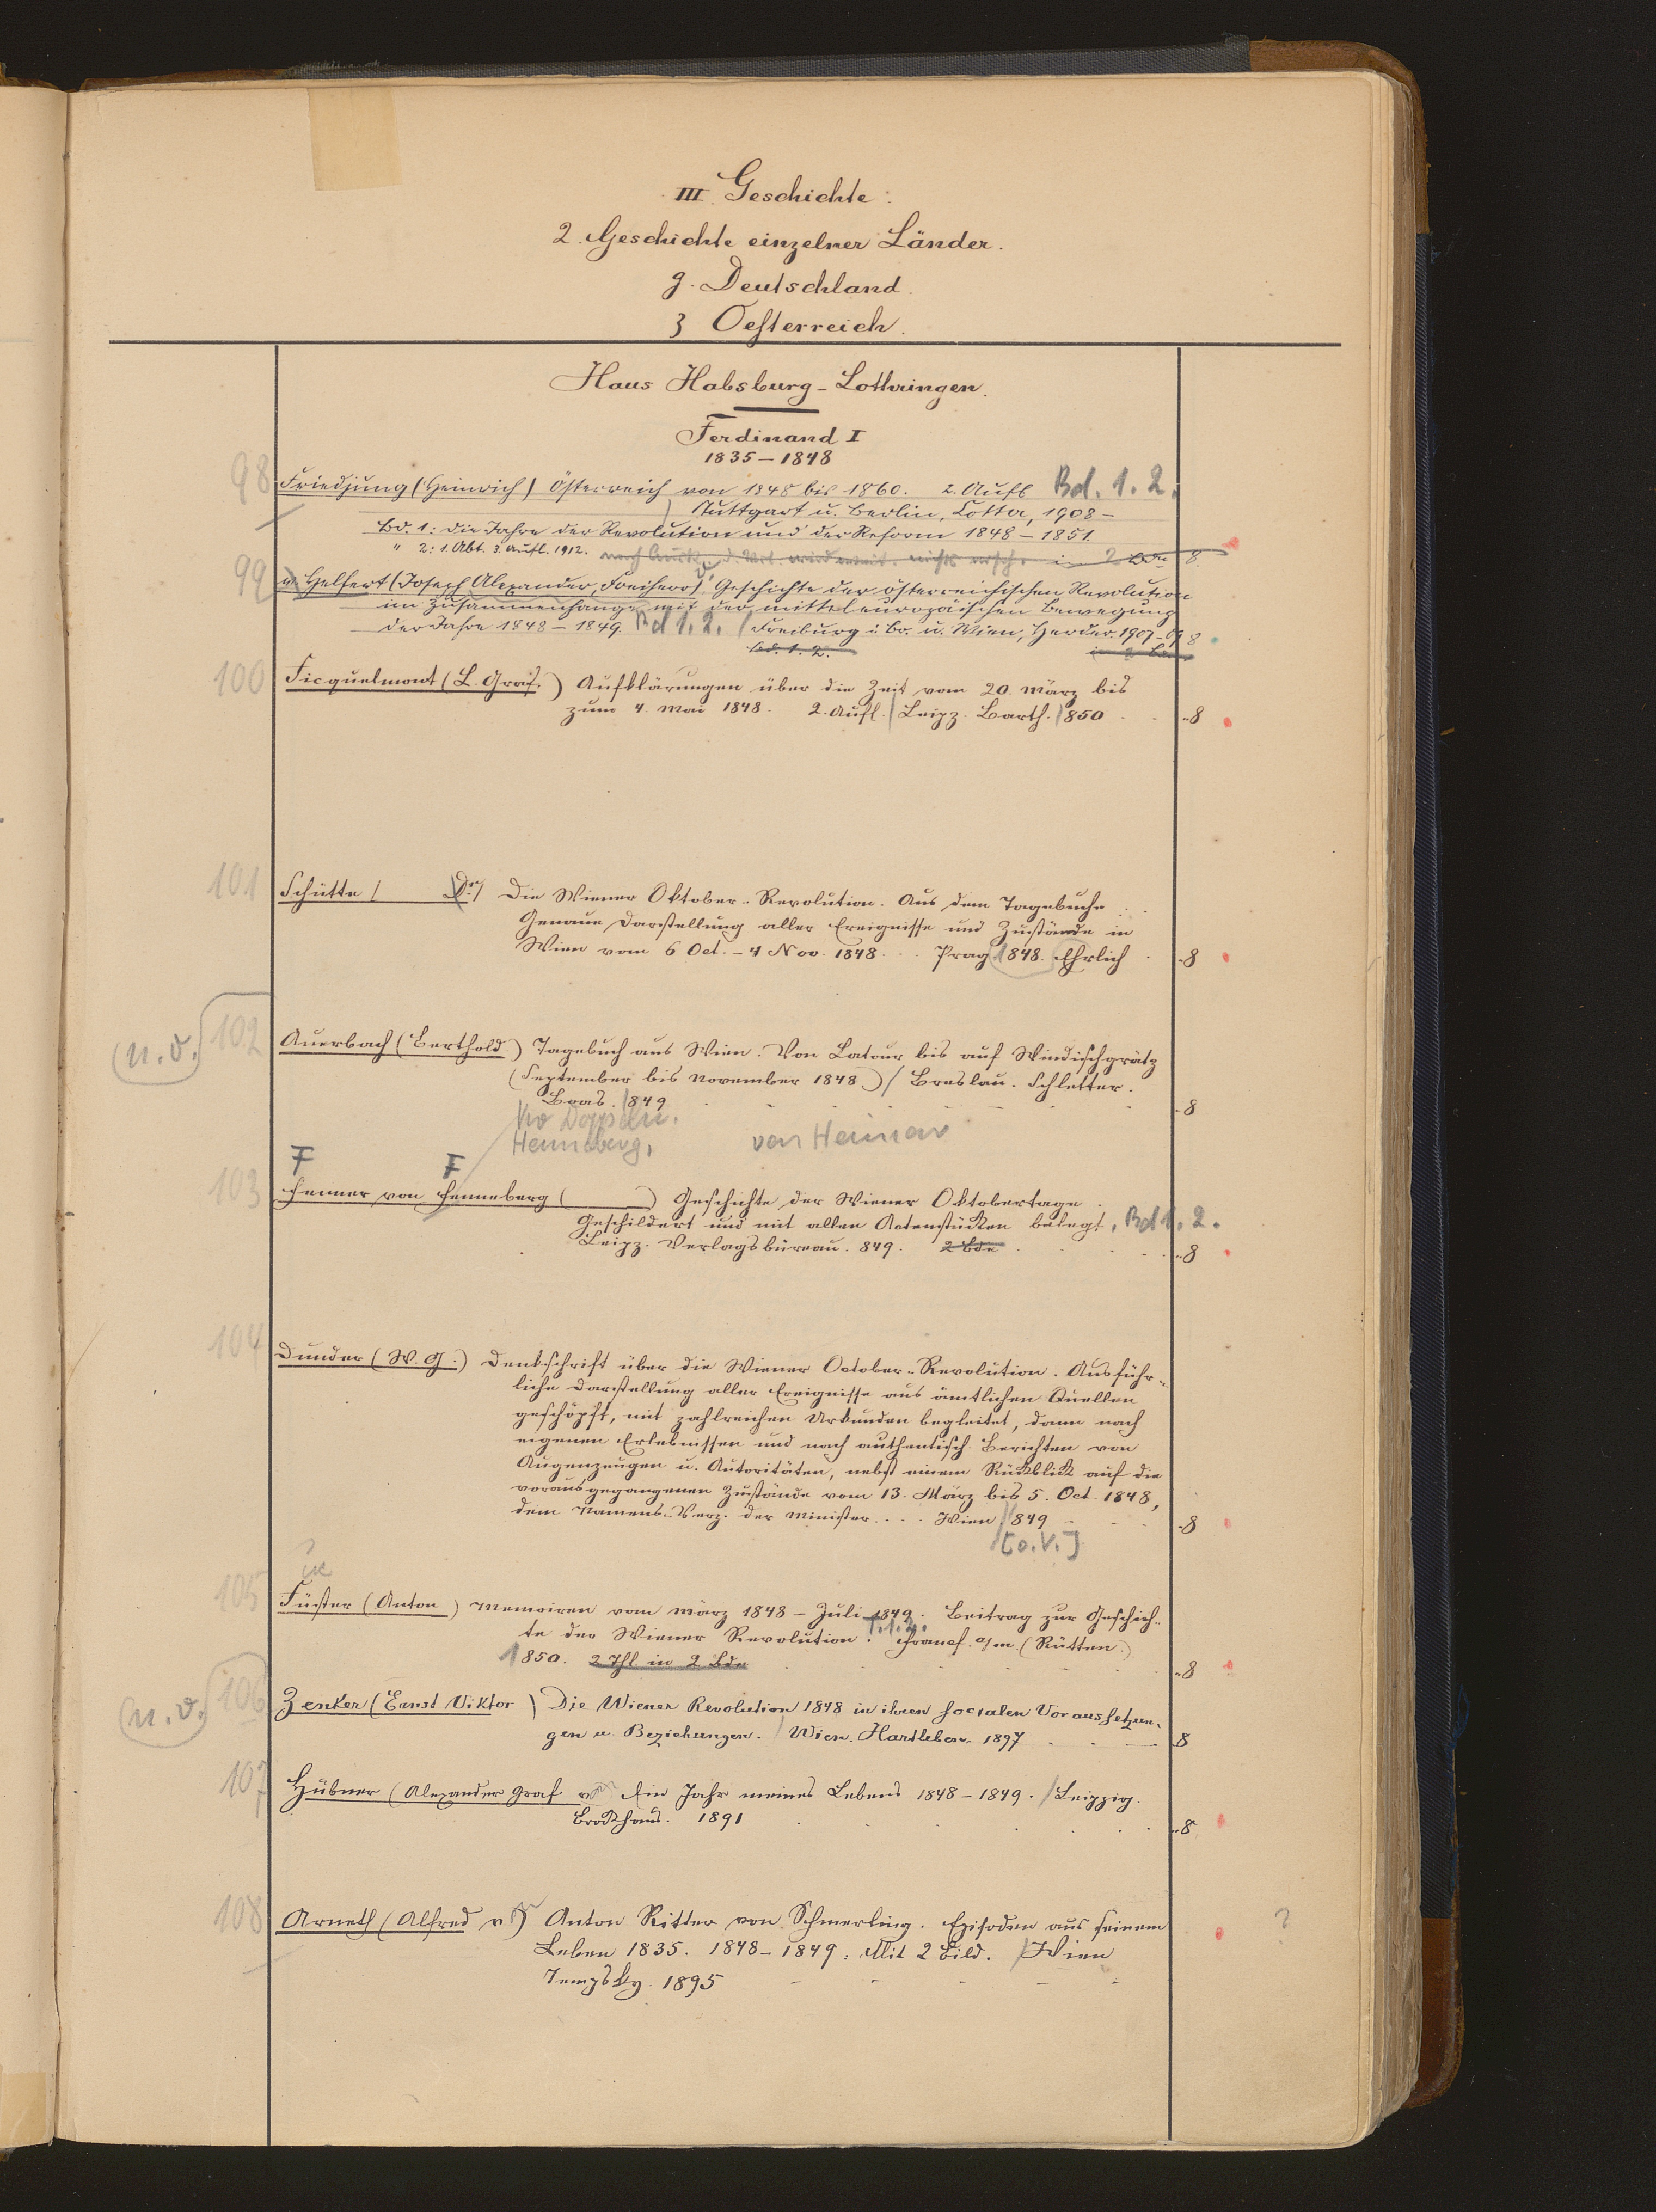 III. Geschichte.
2. Geschichte einzelner Länder.
g. Deutschland.
3 Oesterreich.
Haus Habsburg-Lothringen.
Ferdinand I
1835-1848
98 Friedjung (Heinrich) Österreich von 1848 bis 1860. 2. Aufl Bd. 1. 2.
Stuttgart u. Berlin, Cotta, 1908-
Bd. 1: Die Jahre der Revolution und der Reform 1848-1851.
" 2: 1. Abt. 3. Aufl. 1912. in 2 Bdn 8
99 v. Helfert (Joseph Alexander, Freiherr) Geschichte der österreichischen Revolution
im Zusammenhange mit der mitteleuropäischen Bewegung
der Jahre 1848-1849. Bd 1. 2. / Freiburg i. Br. u. Wien, Herder. 1907-09 8
Bd. 1. 2. in 2 Bdn
100 Ficquelmont (L. Graf.) Aufklärungen über die Zeit vom 20. März bis
zum 4. Mai 1848. 2. Aufl. / Leipz. Barth. 1850 8
101 Schütte ( Dr.) Die Wiener Oktober-Revolution. Aus dem Tagebuche
Genaue Darstellung aller Ereignisse und Zustände in
Wien vom 6 Oct. - 4 Nov. 1848... Prag 1848. Ehrlich 8
(n. v.) 102 Auerbach (Berthold) Tagebuch aus Wien. Von Latour bis auf Windischgrätz
(September bis November 1848) / Breslau. Schletter.
1849 8
Henneberg,
103 Fenner von Fenneberg ( ) Geschichte der Wiener Oktobertage.
Geschildert und mit allen Actenstücken belegt. Bd 1. 2.
Leipz. Verlagsbüreau. 849. 2 Bde 8
104 Dunder (W. G.) Denkschrift über die Wiener October-Revolution. Ausführ-
liche Darstellung aller Ereignisse aus ämtlichen Quellen
geschöpft, mit zahlreichen Urkunden begleitet, dann nach
eigenen Erlebnissen und nach authentisch. Berichten von
Augenzeugen u. Autoritäten, nebst einem Rückblick auf die
vorausgegangenen Zustände vom 13. März bis 5. Oct. 1848,
dem Namens-Verz. der Minister.... Wien / 1849 8
[o. V.]
105 Füster (Anton) Memoiren vom März 1848 - Juli 1849. Beitrag zur Geschich-
te der Wiener Revolution. T. 1. 2. Francf. a/m. (Rütten.)
1850. 2 Thl. in 2 Bde 8
(n. v.) 106 Zenker (Ernst Viktor) Die Wiener Revolution 1848 in ihren socialen Voraussetzun-
gen u. Beziehungen. / Wien. Hartleben. 1897 8
107 Hübner (Alexander Graf v.) Ein Jahr meines Lebens 1848-1849. / Leipzig.
Brockhaus. 1891 8
108 Arneth (Alfred v.) Anton Ritter von Schmerling. Episoden aus seinem ?
Leben 1835. 1848-1849. Mit 2 Bild. / Wien
Tempsky. 1895